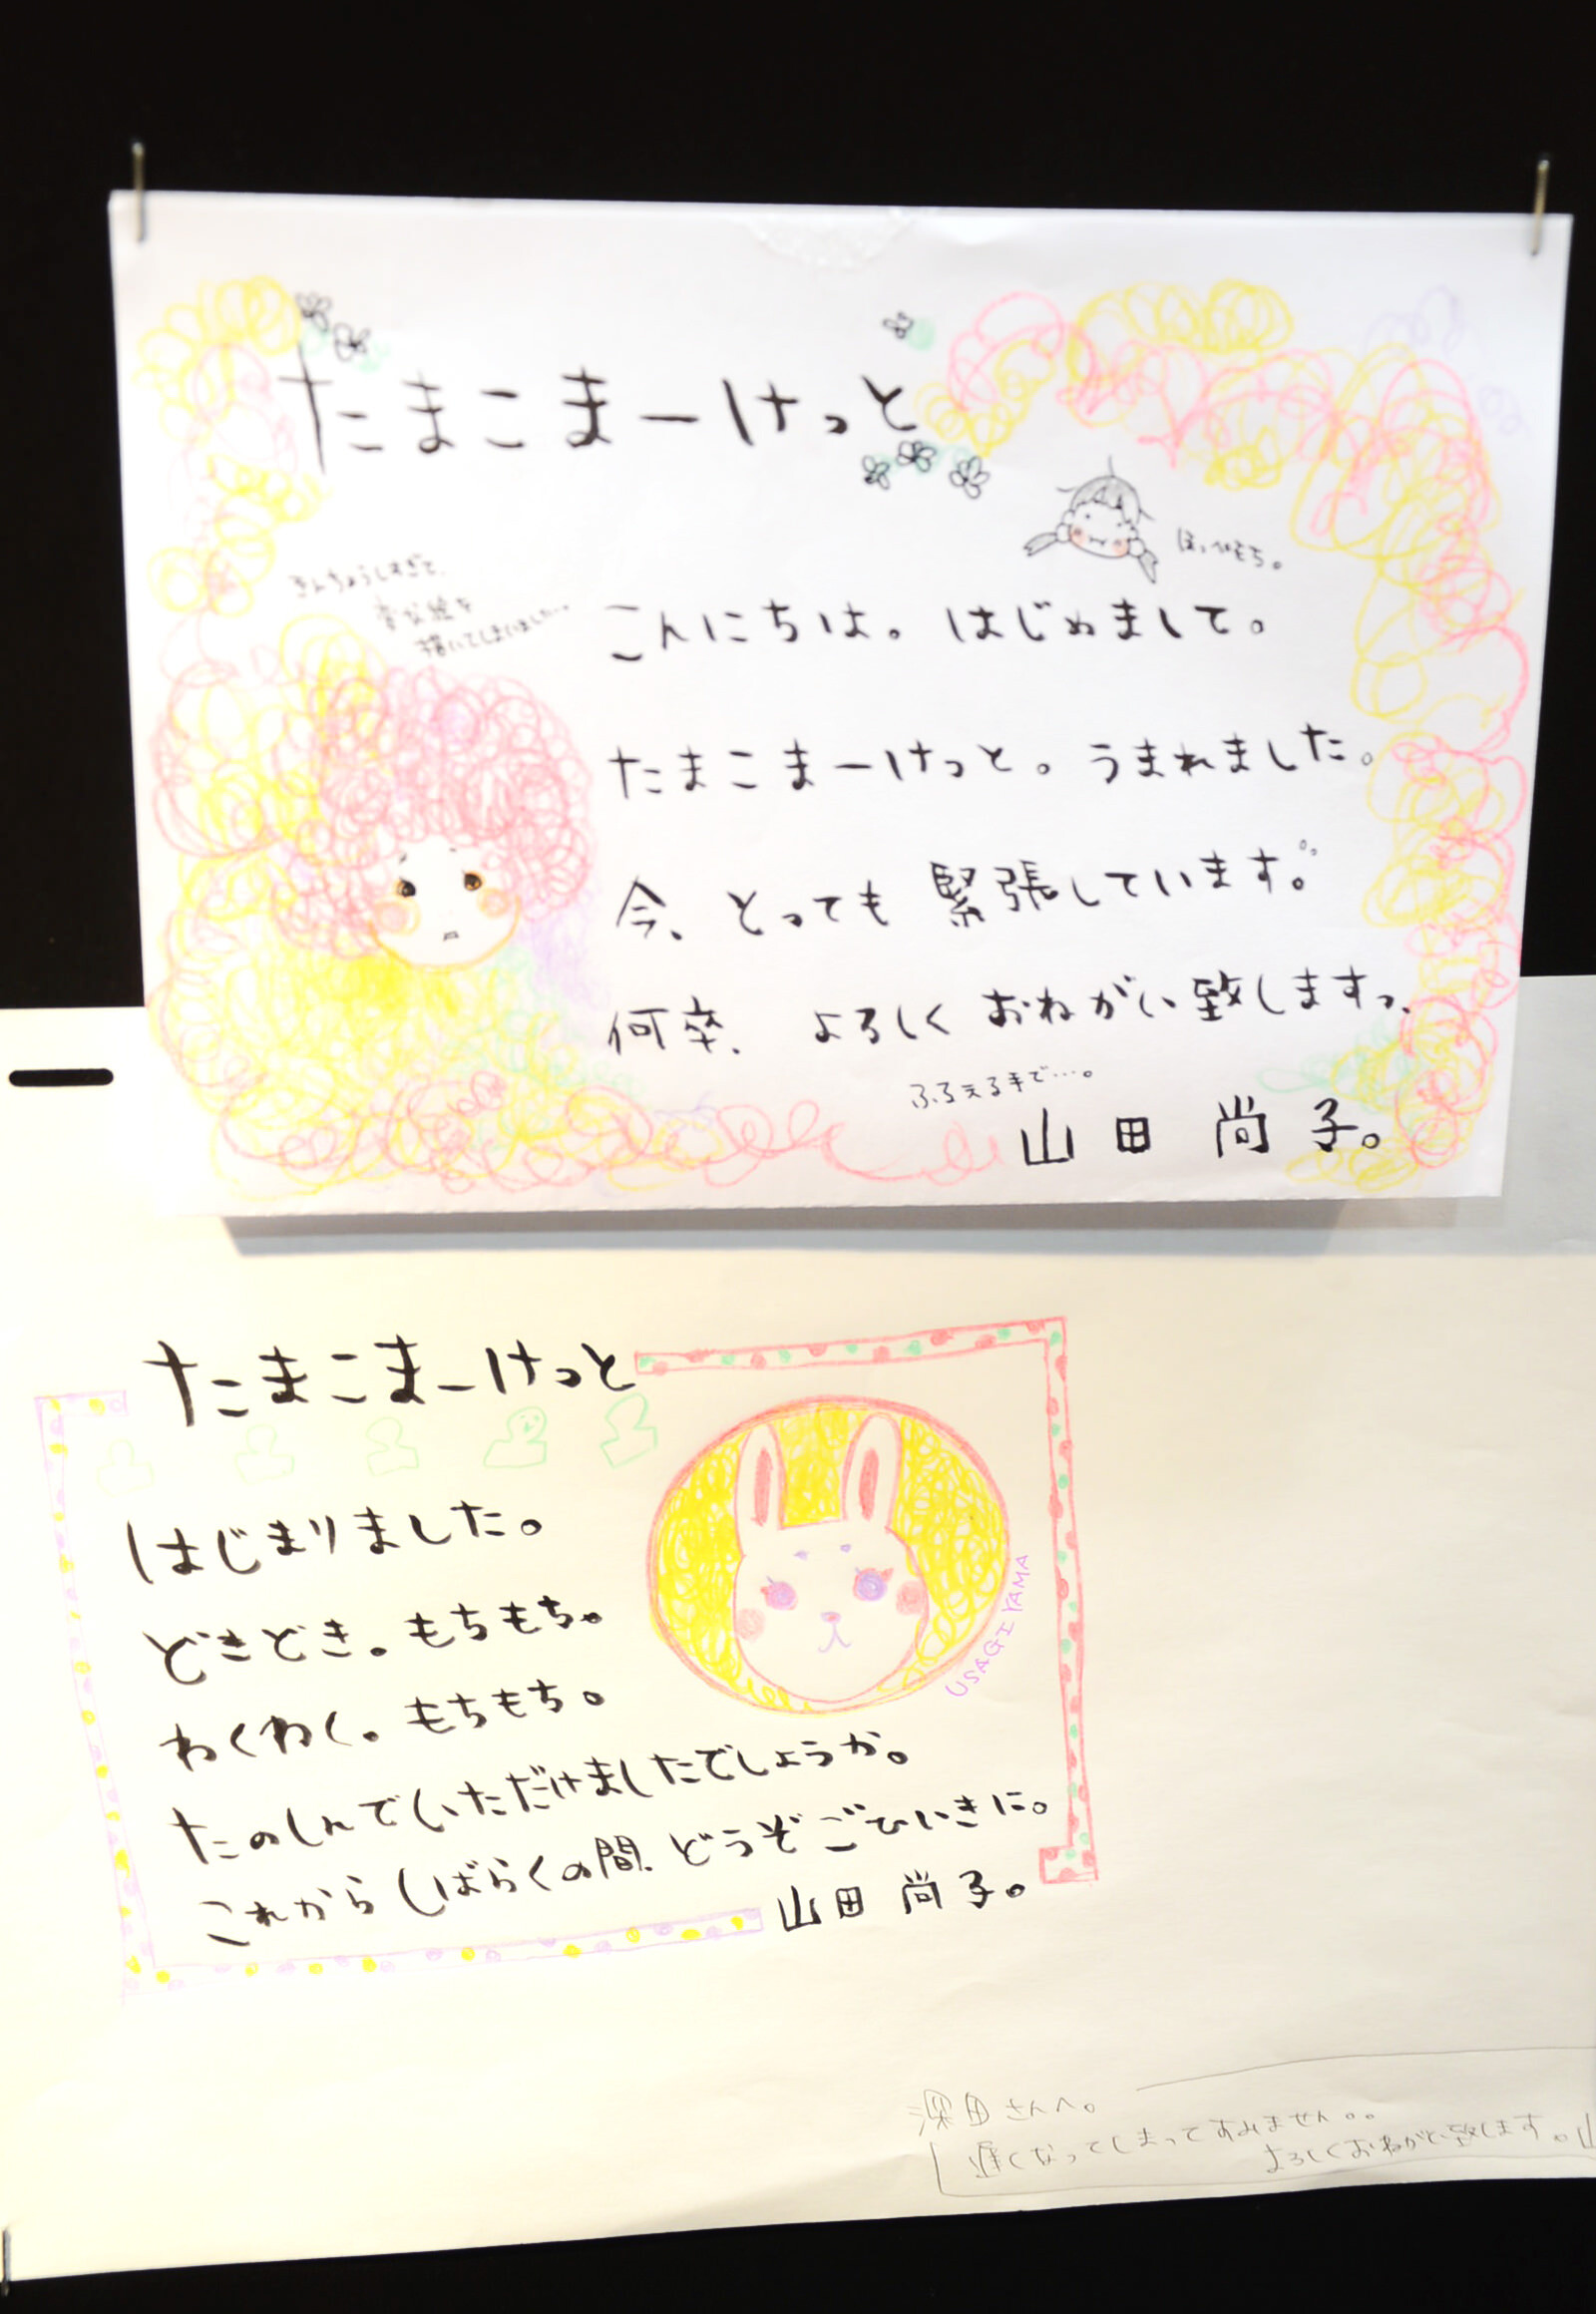 たまこまーけっと
ほっぺもち。
きんちょうしすぎて、
変な絵を
描いてしまいました…
こんにちは。はじめまして。
たまこまーけっと。うまれました。
今、とっても緊張しています。
何卒、よろしくおねがい致しますっ、
ふるえる手で…。
山田尚子。
たまこまーけっと
はじまりました。
どきどき。もちもち。
わくわく。もちもち。
USAGIYAMA
たのしんでいただけましたでしょうか。
これからしばらくの間、どうぞごひいきに。
山田尚子。
深田さんへ。
遅くなってしまってすみません。。
よろしくおねがい致します。山